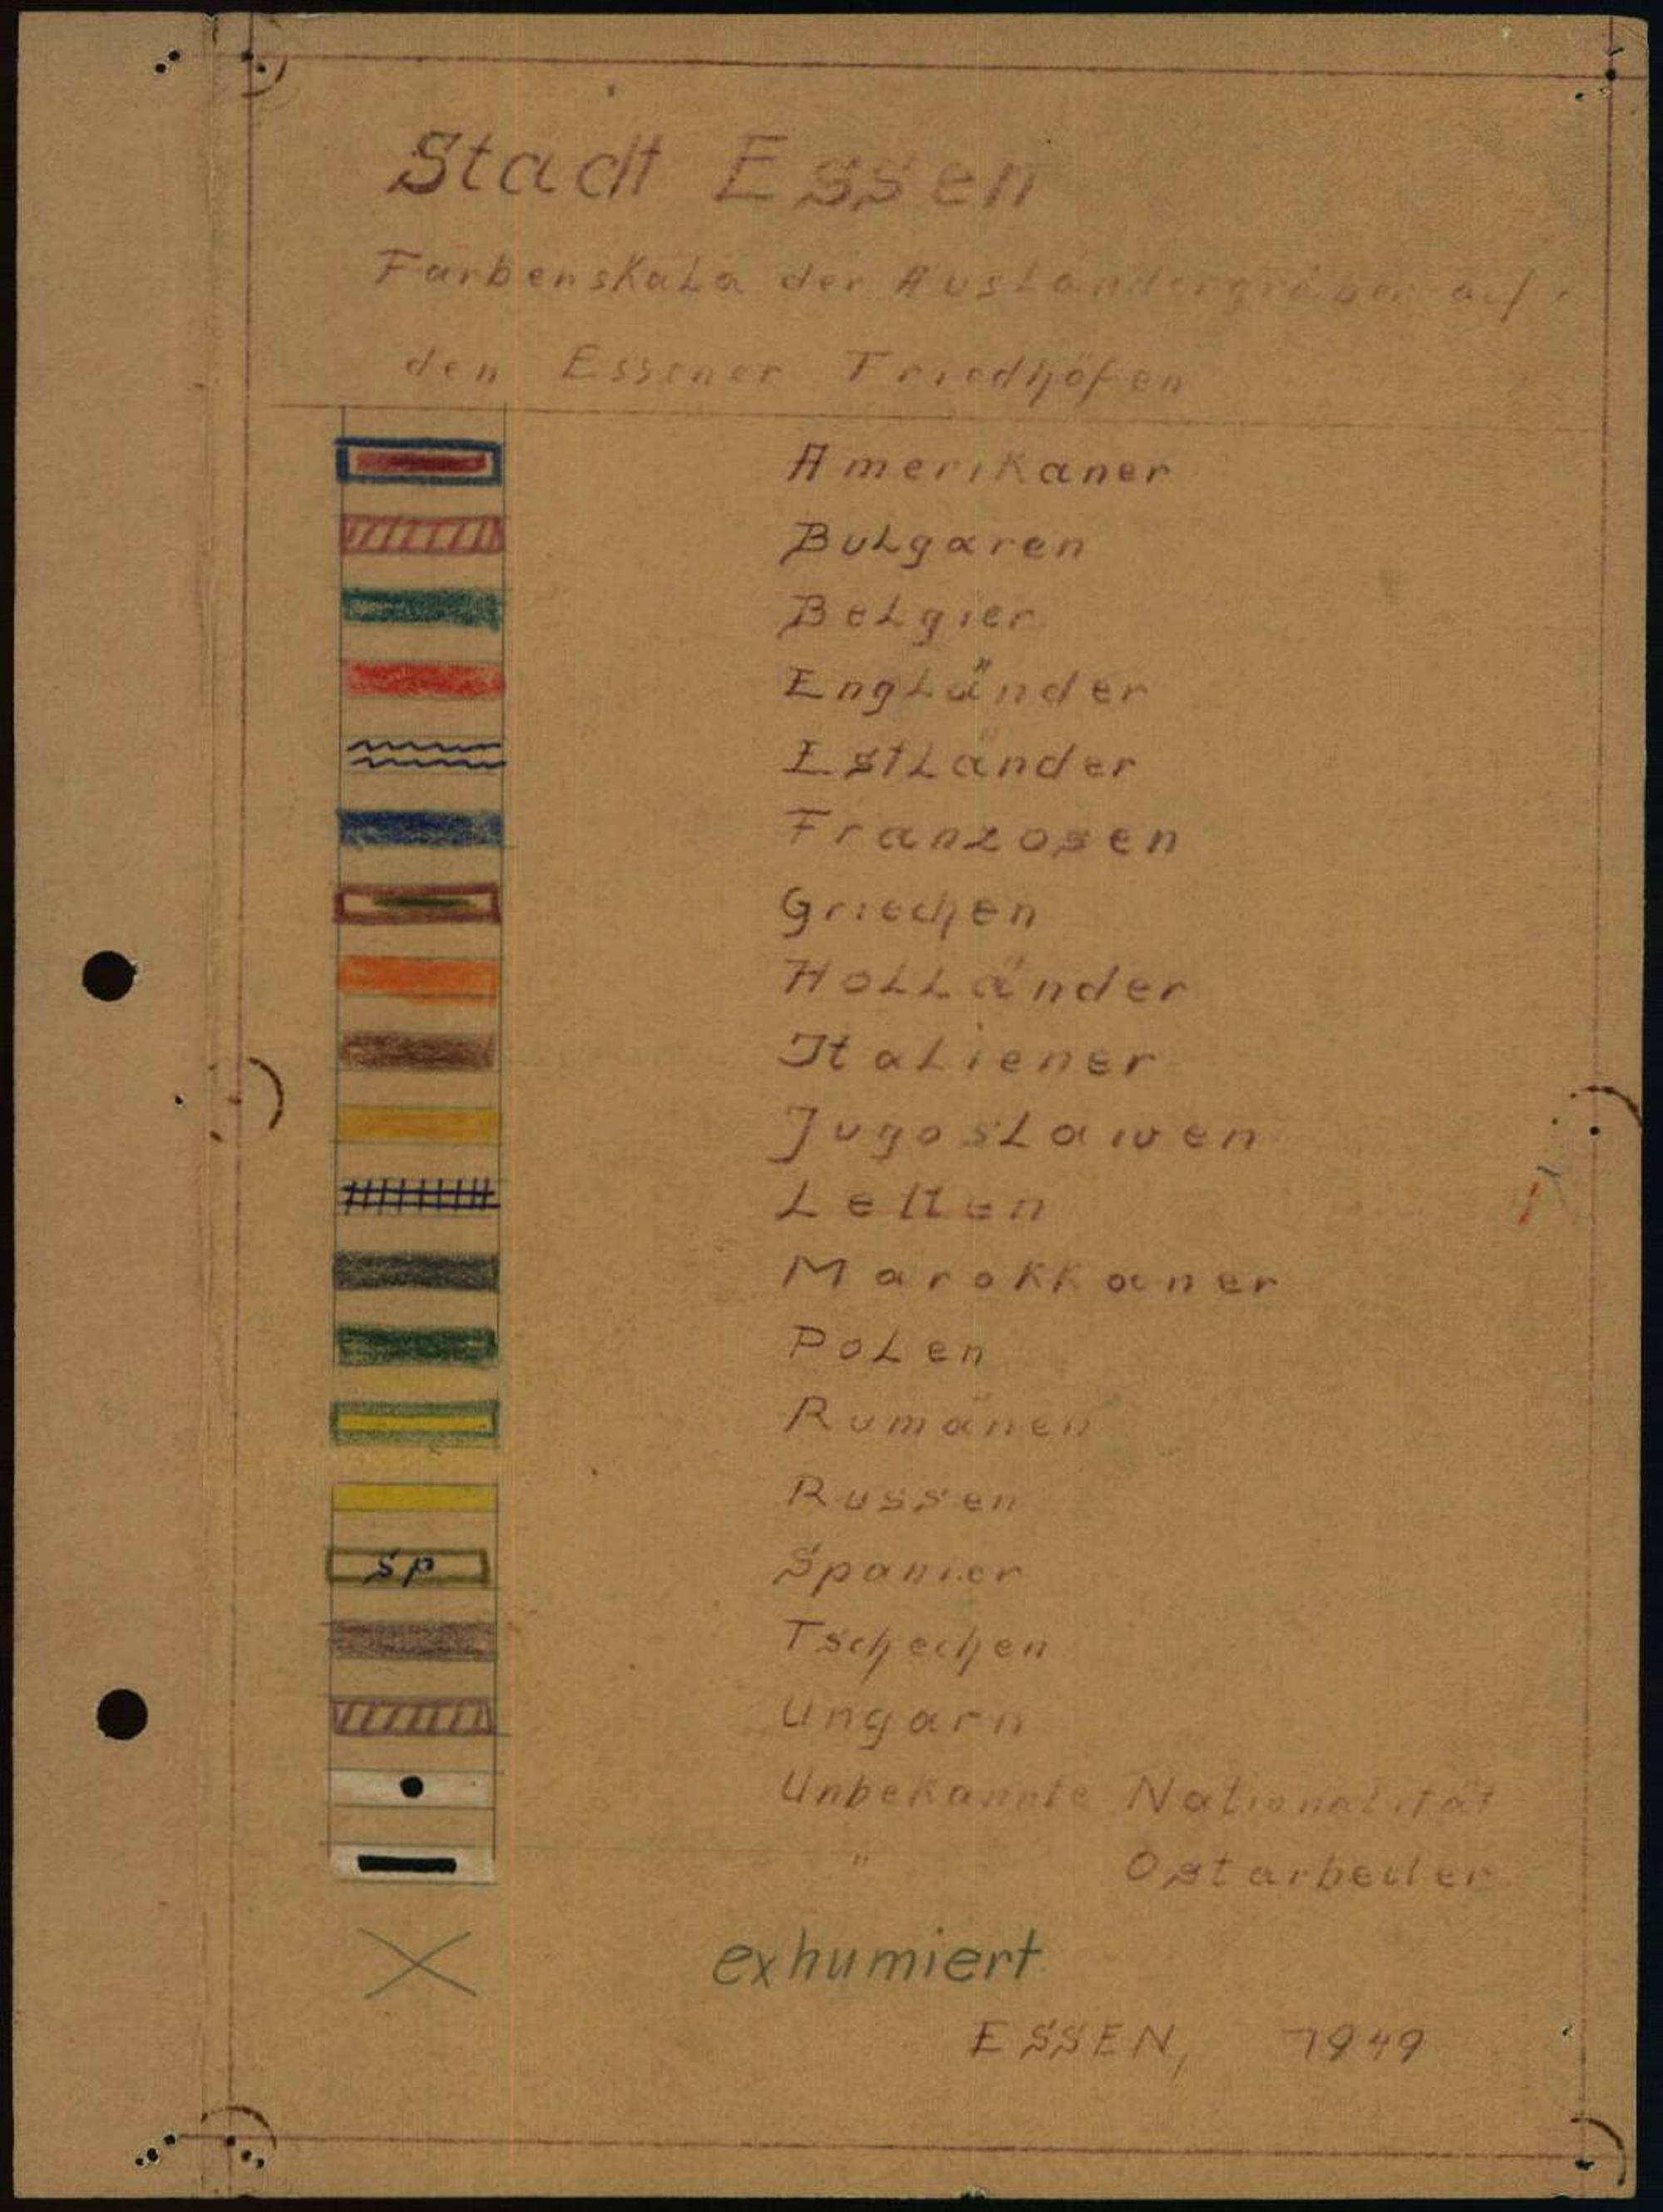 Stadt Essen
Farbenskala der Ausländergräber auf
den Essener Friedhöfen
Amerikaner
Bulgaren
Belgier
Engländer
Estländer
Franzosen
Griechen
Holländer
Italiener
Jugoslawen
Letten
Marokkaner
Polen
Rumänen
Russen
SP Spanier
Tschechen
Ungarn
Unbekannte Nationalität
" Ostarbeiter
exhumiert
ESSEN, 1949